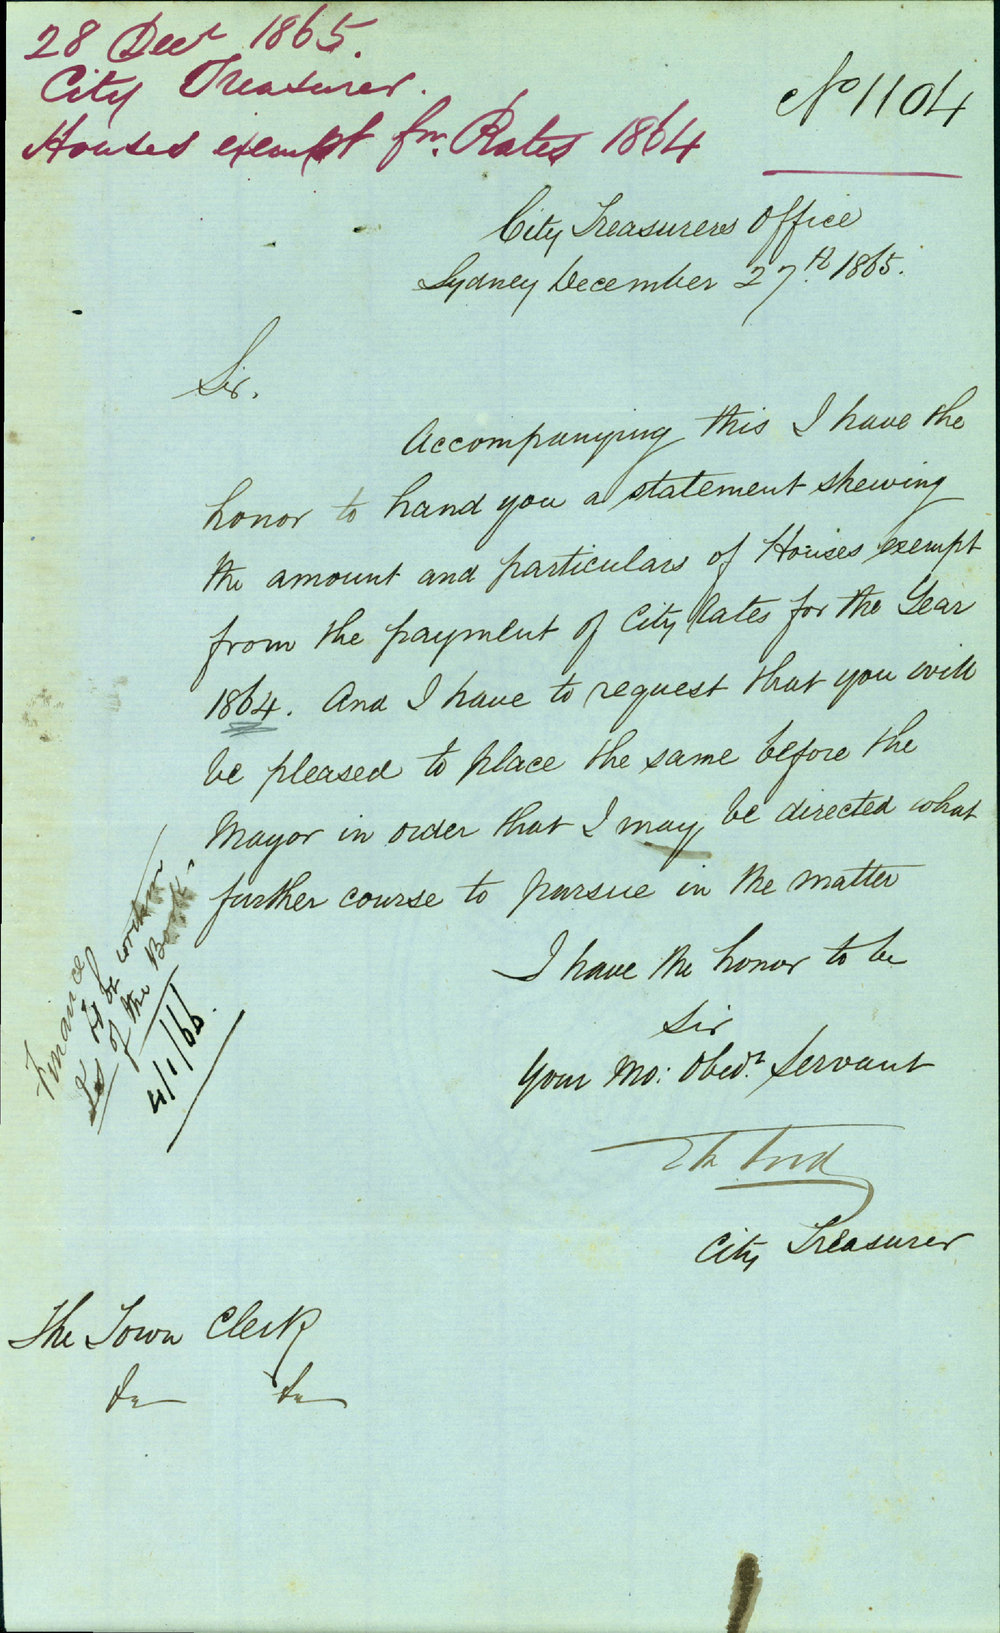 28 Decr 1865.
City Treasurer.
Houses exempt fm. Rates 1864
No 1104
City Treasurers Office
Sydney December 27th 1865.
Sir.
Accompanying this I have the
honor to hand you a statement shewing
the amount and particulars of Houses exempt
from the payment of City Rates for the Year
1864. And I have to request that you will
be pleased to place the same before the
Mayor in order that I may be directed what
further course to pursue in the matter
I have the honor to be
Sir
Your Mo: Obedt. Servant
City Treasurer
Finance
To be written
of the Books
4/1/66.
The Town Clerk